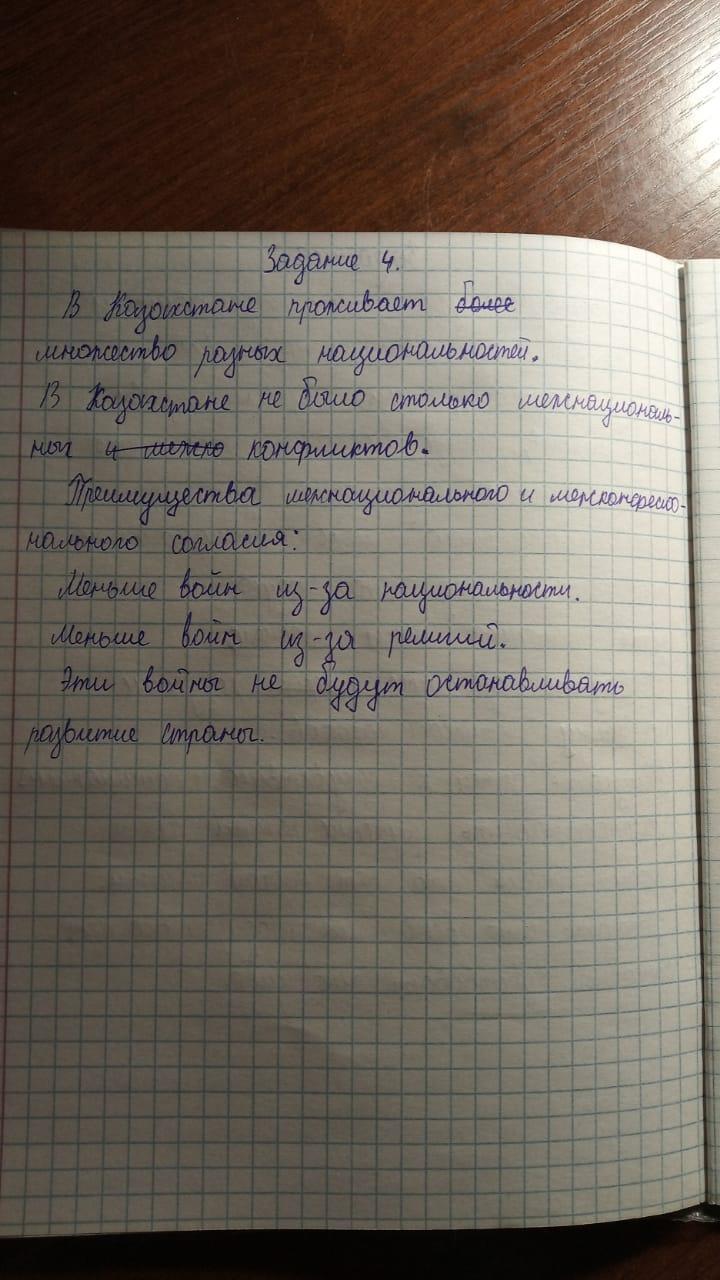 Задание 4.
В Казахстане проживает более
множество разных национальностей.
В Казахстане не было столько межнациональ-
ных и межко конфликтов.
Преимущества межнационального и межконфессио-
нального согласия:
Меньше войн из-за национальности.
Меньше войн из-за религий.
Эти войны не будут останавливать
развитие страны.